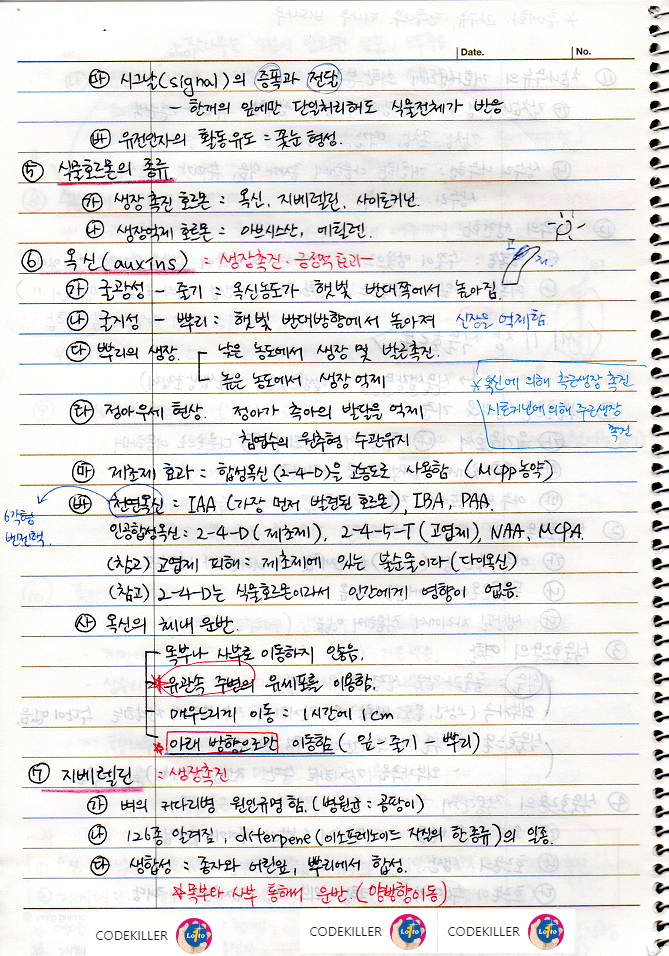 Date. No.
㉳ 시그날(signal)의 증폭과 전달
- 한개의 잎에만 단일처리해도 식물전체가 반응
㉥ 유전인자의 활동유도 = 꽃눈 형성.
⑤ 식물호르몬의 종류.
㉮ 생장촉진 호르몬 = 옥신, 지베렐린, 사이토키닌.
㉯ 생장억제 호르몬 = 아브시스산, 에틸렌.
⑥ 옥신(auxins) = 생장촉진·긍정적 효과
㉮ 굴광성 - 줄기 : 옥신농도가 햇빛 반대쪽에서 높아짐.
㉯ 굴지성 - 뿌리 : 햇빛 반대방향에서 높아져 신장을 억제함
㉰ 뿌리의 생장. 낮은 농도에서 생장 및 발근촉진.
높은 농도에서 생장 억제
*옥신에 의해 측근생장 촉진
시토키닌에 의해 주근생장
촉진
㉱ 정아우세 현상. 정아가 측아의 발달을 억제
침엽수의 원추형 수관유지
㉲ 제초제 효과 : 합성옥신(2-4-D)을 고농도로 사용함 (MCpp농약)
㉳ 천연옥신 = IAA (가장 먼저 발견된 호르몬), IBA, PAA.
6각형
벤젠핵.
인공합성옥신 : 2-4-D(제초제), 2-4-5-T(고엽제), NAA, MCPA.
(참고) 고엽제 피해 : 제초제에 있는 불순물이라(다이옥신)
(참고) 2-4-D는 식물호르몬이라서 인간에게 영향이 없음.
㉴ 옥신의 체내 운반.
목부나 사부로 이동하지 않음.
*유관속 주변의 유세포를 이용함.
매우느리게 이동 = 1시간에 1cm
*아래 방향으로만 이동함 (잎 - 줄기 - 뿌리)
⑦ 지베렐린 = 생장촉진
㉮ 벼의 키다리병 원인규명함. (병원균 : 곰팡이)
㉯ 126종 알려짐, diterpene(이소프레노이드 지질의 한종류)의 일종.
㉰ 생합성 = 종자와 어린잎, 뿌리에서 합성.
*목부와 사부 통해서 운반. (양방향이동)
CODEKILLER Lotto CODEKILLER Lotto CODEKILLER Lotto